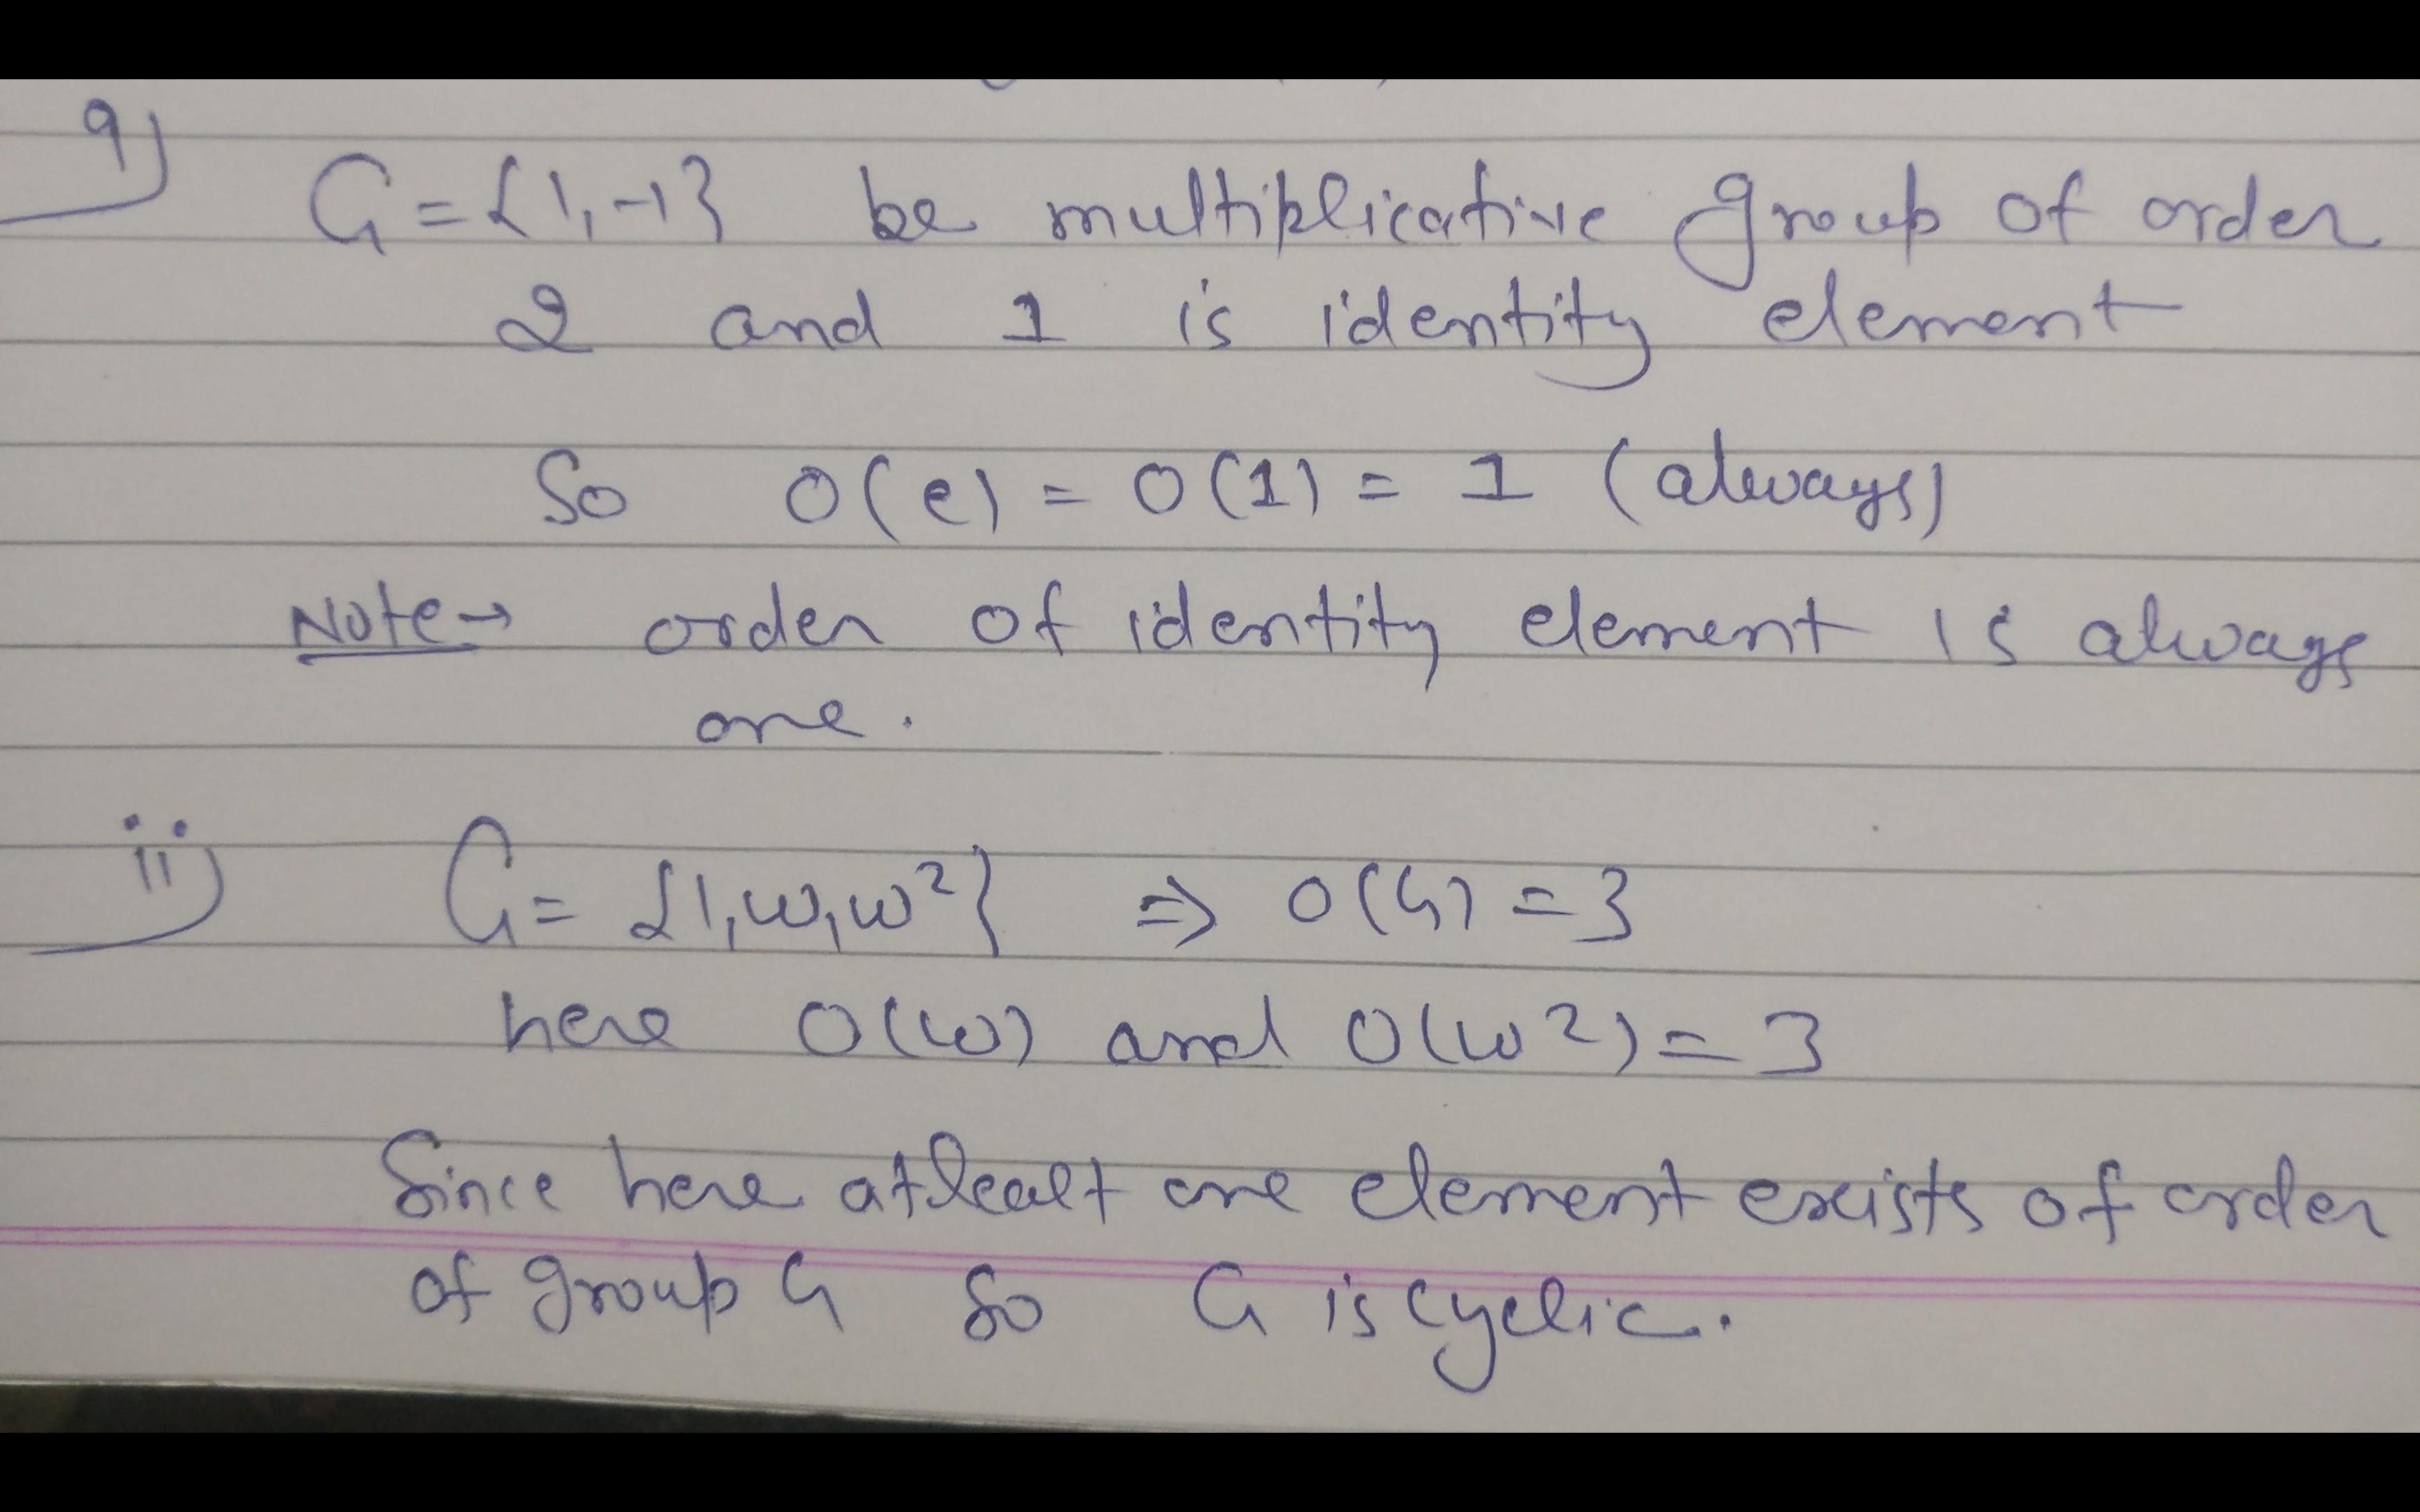 9)
G = {1, -1} be multiplicative group of order
2 and 1 is identity element
So O(e) = O(1) = 1 (always)
Note→ order of identity element is always
one.
ii) G = {1, ω, ω²} ⇒ O(G) = 3
here O(ω) and O(ω²) = 3
Since here atleast one element exists of order
of group G so G is cyclic.